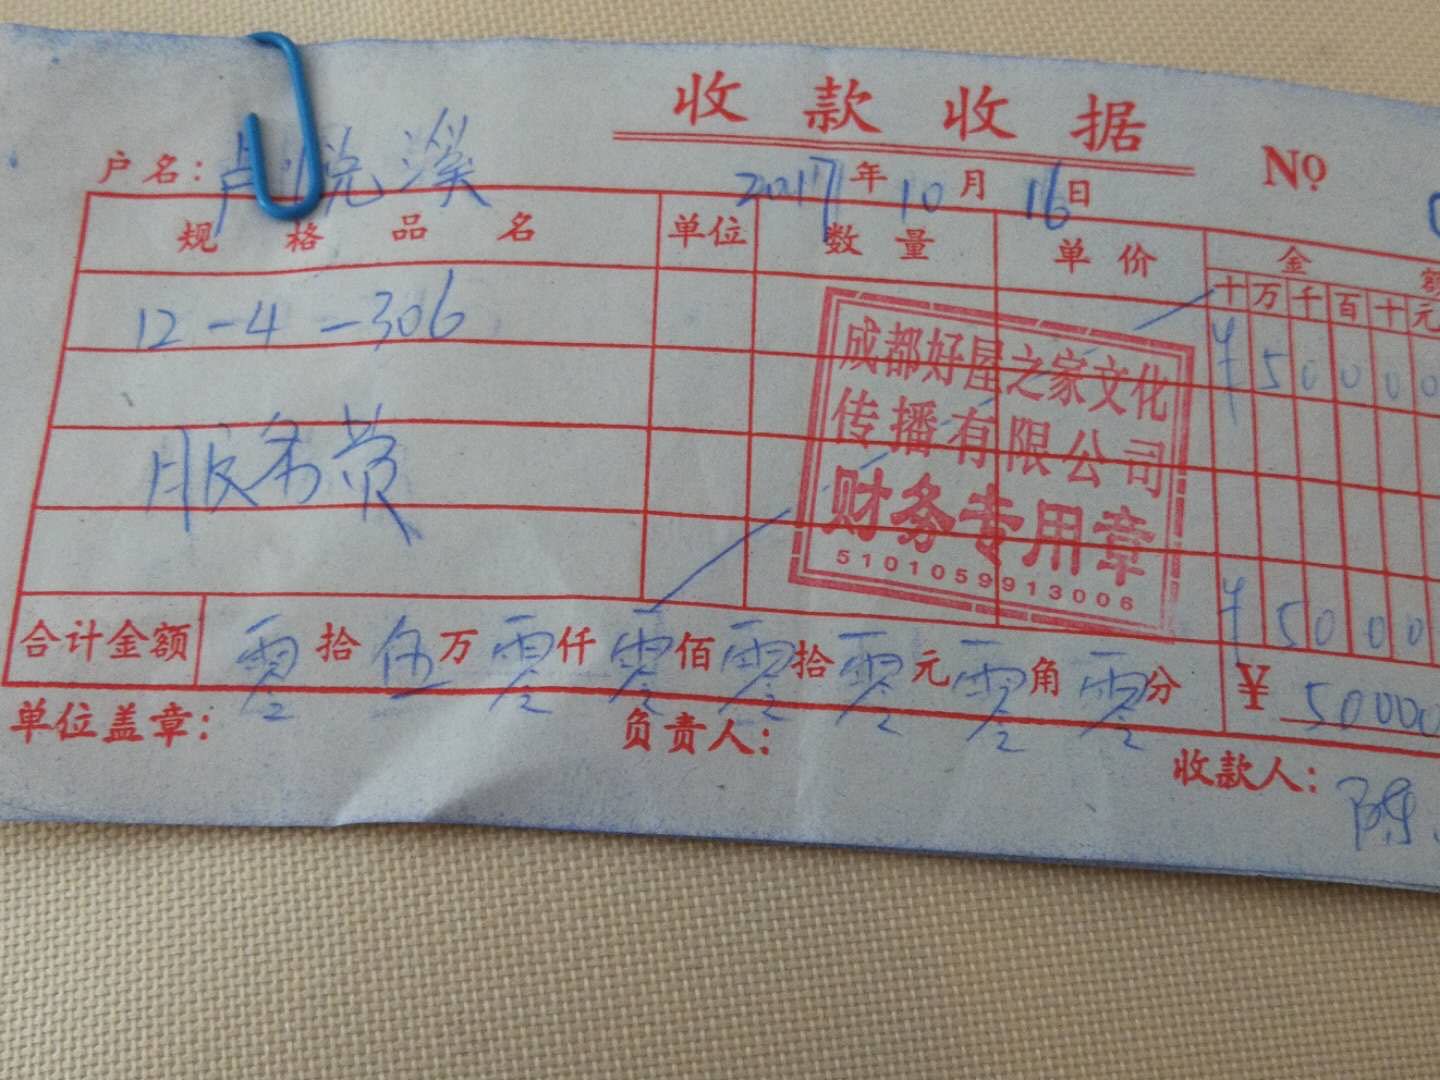 收款收据
No
户名：卢悦溪 2017年10月16日
规格品名 单位 数量 单价 金额
十万千百十元
12-4-306 ¥50000
服务费
¥5000
合计金额 零拾伍万零仟零佰零拾零元零角零分 ¥50000
单位盖章： 负责人： 收款人：陈
成都好屋之家文化
传播有限公司
财务专用章
5101059913006